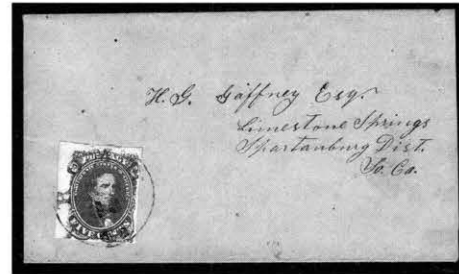 H. G. Gaffney Esq.
Limestone Springs
Spartanburg Dist.
So. Ca.
FIVE CENTS